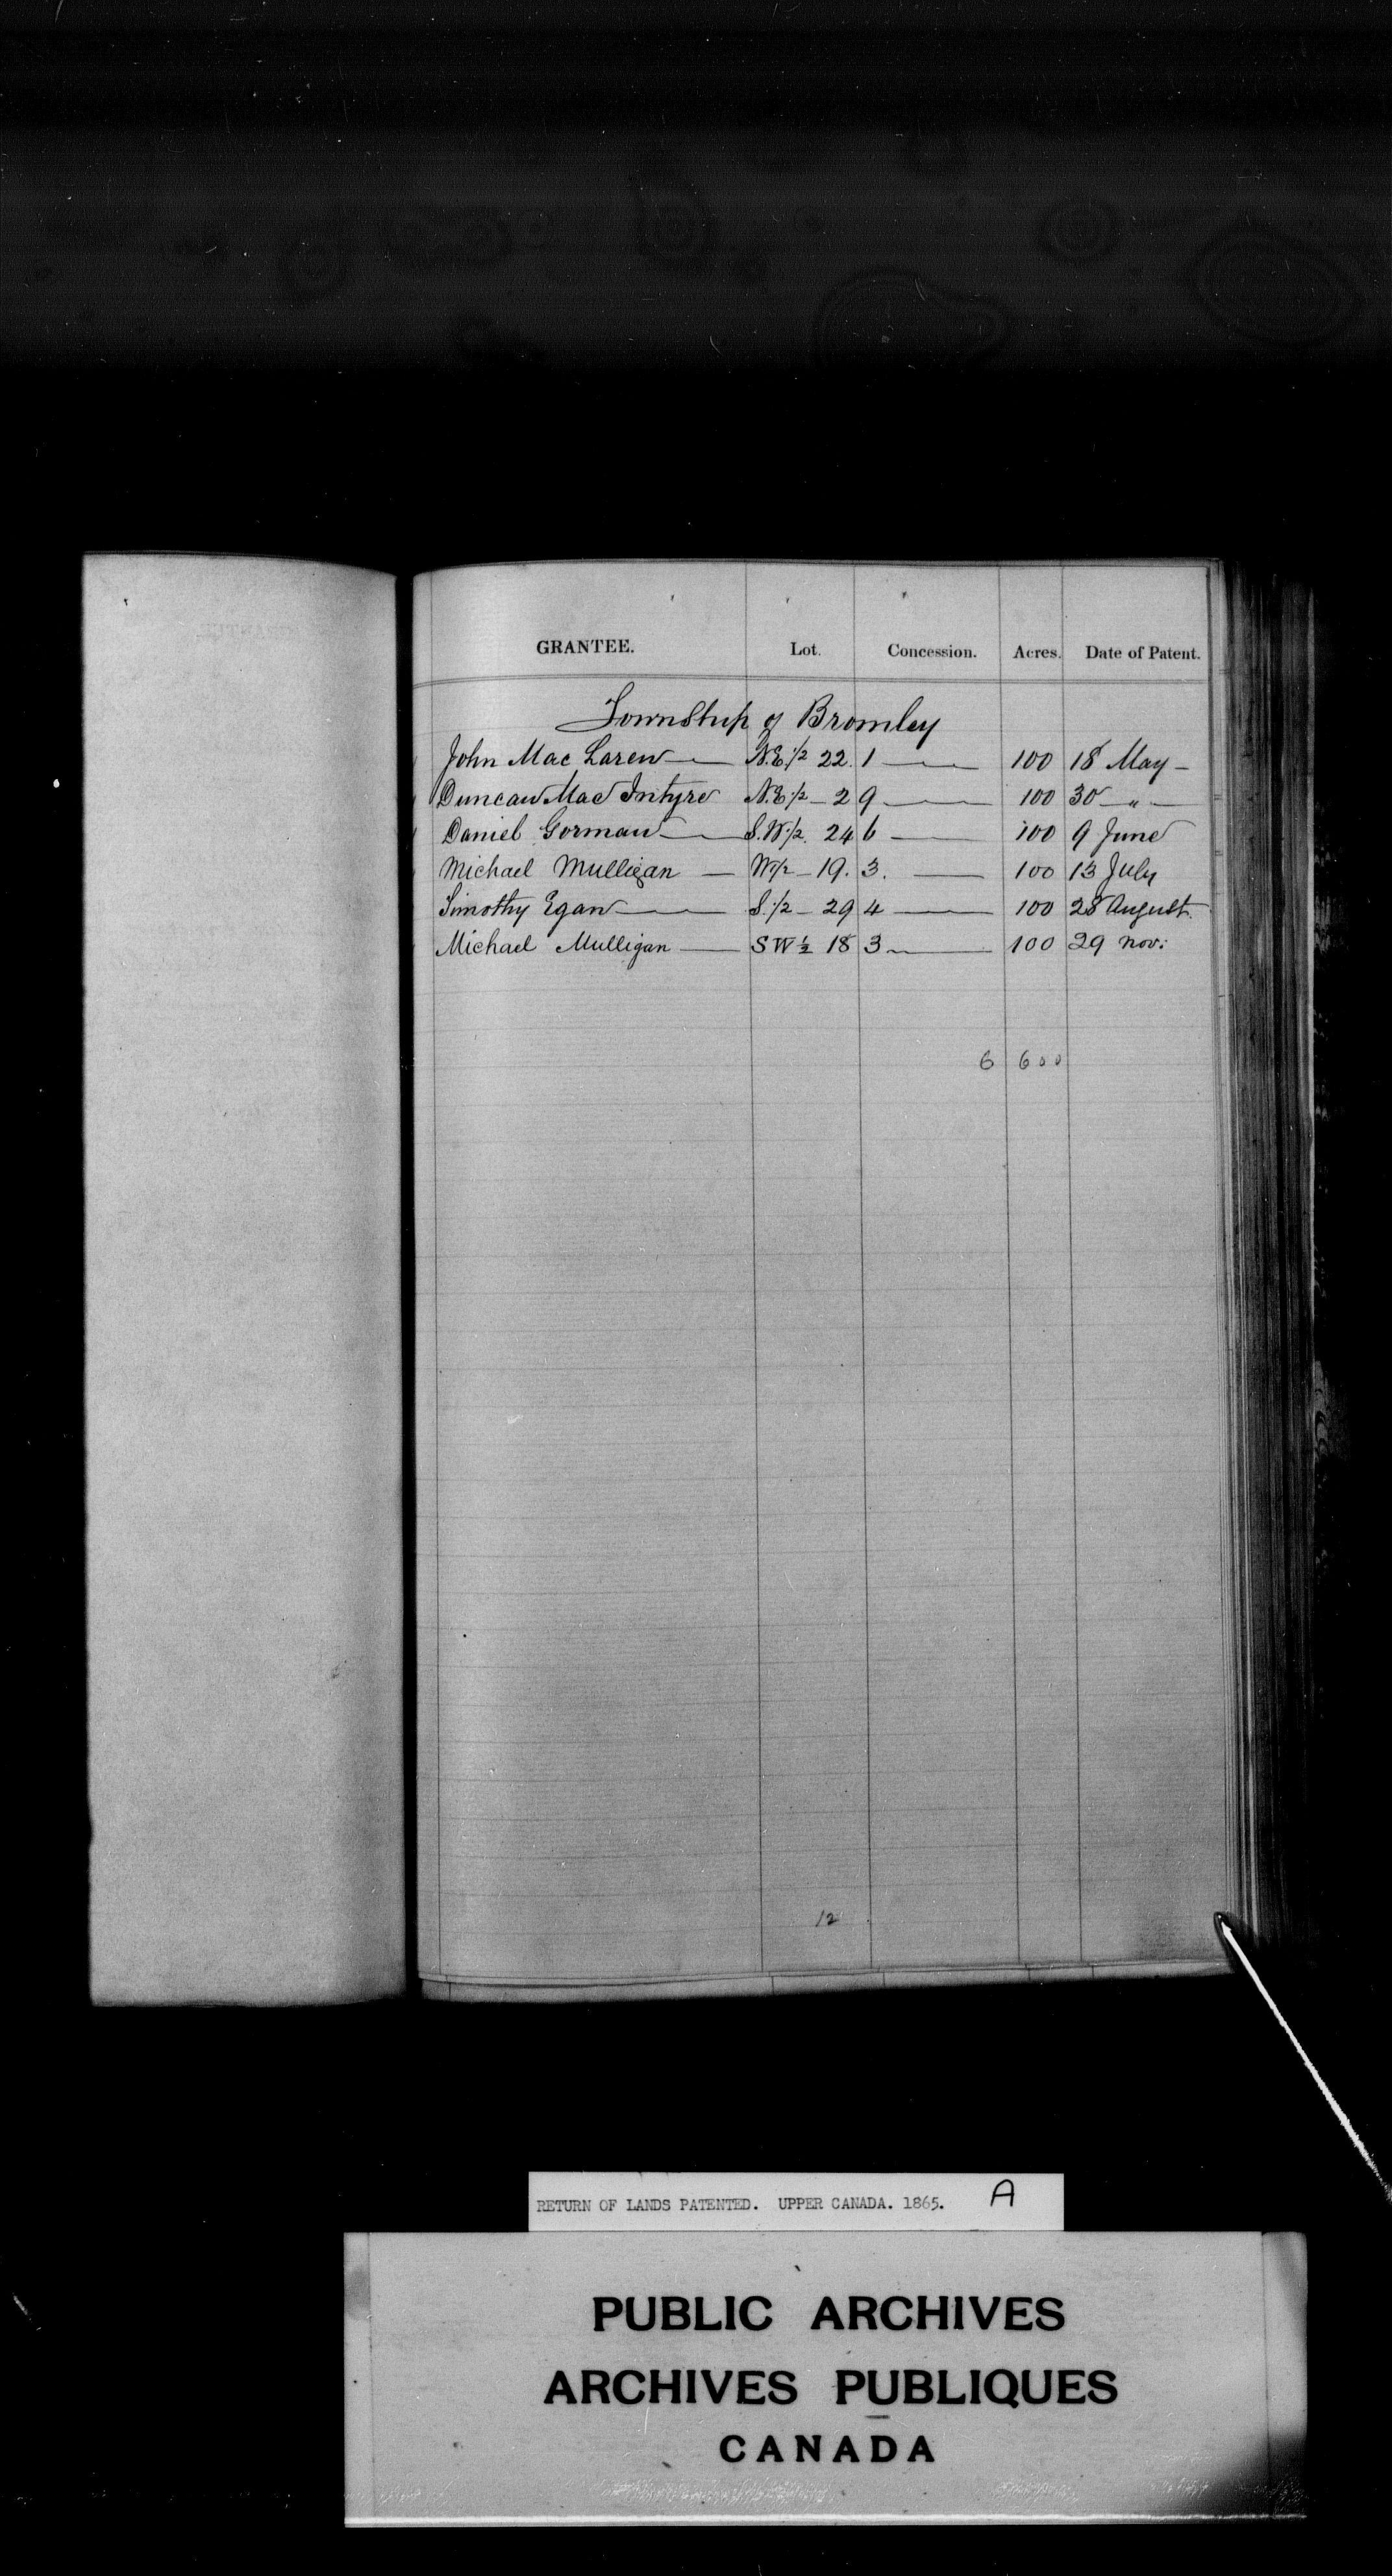 GRANTEE. Lot. Concession. Acres. Date of Patent.
Township of Bromley
John Mac Laren — N.E. 1/2 22. 1 — 100 18 May —
Duncan Mac Intyre N.E 1/2 — 2 9 — 100 30 — " —
Daniel Gorman — S.W 1/2. 24 6 — 100 9 June
Michael Mulligan — W 1/2 — 19. 3. — 100 13 July
Timothy Egan — S. 1/2 — 29 4 — 100 28 August.
Michael Mulligan — SW 1/2 18 3 — 100 29 Nov:
6 600
12
RETURN OF LANDS PATENTED. UPPER CANADA. 1865. A
PUBLIC ARCHIVES
ARCHIVES PUBLIQUES
CANADA